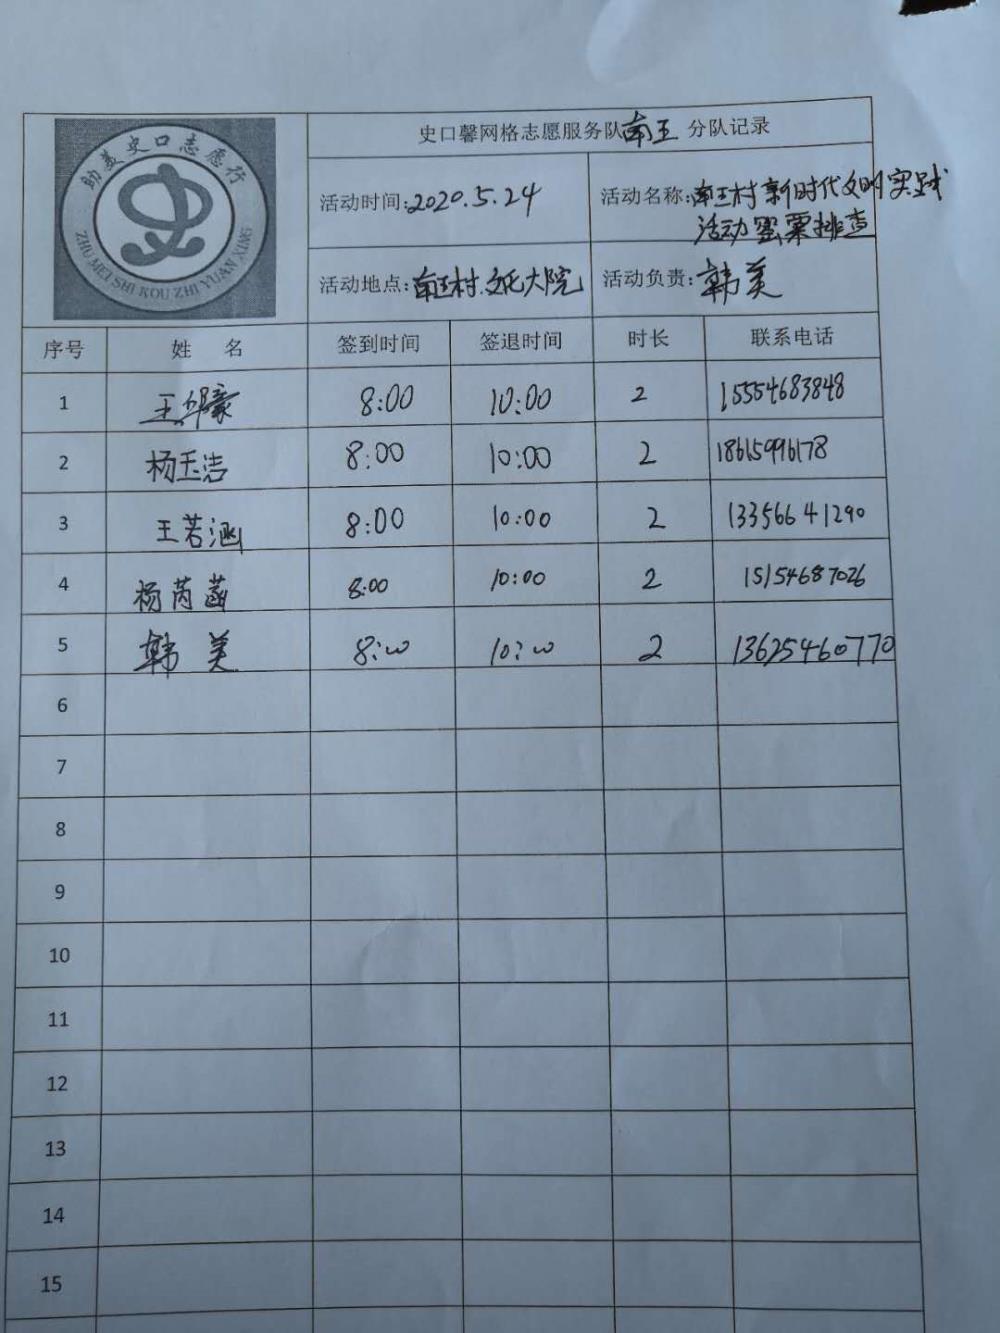 助美史口志愿行
ZHU MEI SHI KOU ZHI YUAN XING
史口馨网格志愿服务队南王 分队记录
活动时间:2020.5.24
活动名称:南王村新时代文明实践
活动罂粟排查
活动地点:南王村文化大院
活动负责:韩美
序号 姓 名 签到时间 签退时间 时长 联系电话
1 王华豪 8:00 10:00 2 15554683848
2 杨玉洁 8:00 10:00 2 18615996178
3 王若涵 8:00 10:00 2 13356641290
4 杨芮菡 8:00 10:00 2 15154687026
5 韩美 8:00 10:00 2 13625460770
6
7
8
9
10
11
12
13
14
15